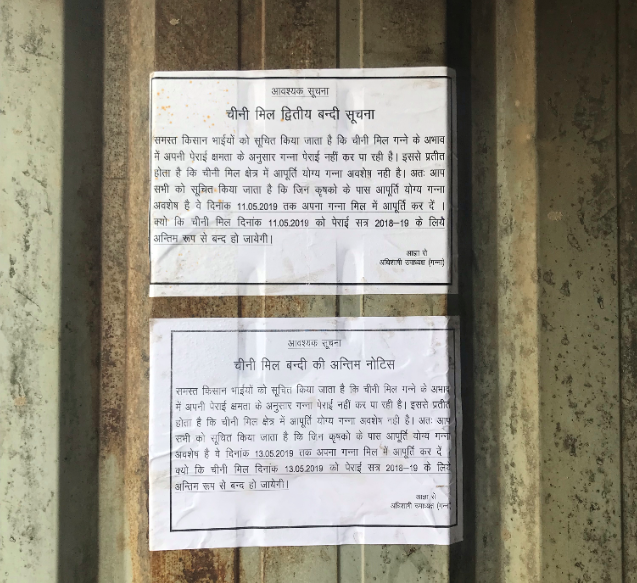 आवश्यक सूचना
चीनी मिल द्वितीय बन्दी सूचना
समस्त किसान भाईयों को सूचित किया जाता है कि चीनी मिल गन्ने के अभाव
में अपनी पेराई क्षमता के अनुसार गन्ना पेराई नहीं कर पा रही है। इससे प्रतीत
होता है कि चीनी मिल क्षेत्र में आपूर्ति योग्य गन्ना अवशेष नही है। अतः आप
सभी को सूचित किया जाता है कि जिन कृषको के पास आपूर्ति योग्य गन्ना
अवशेष है वे दिनांक 11.05.2019 तक अपना गन्ना मिल में आपूर्ति कर दें ।
क्यो कि चीनी मिल दिनांक 11.05.2019 को पेराई सत्र 2018–19 के लिये
अन्तिम रूप से बन्द हो जायेगी।
आज्ञा से
अधिशासी उपाध्यक्ष (गन्ना)
आवश्यक सूचना
चीनी मिल बन्दी की अन्तिम नोटिस
समस्त किसान भाईयों को सूचित किया जाता है कि चीनी मिल गन्ने के अभाव
में अपनी पेराई क्षमता के अनुसार गन्ना पेराई नहीं कर पा रही है। इससे प्रतीत
होता है कि चीनी मिल क्षेत्र में आपूर्ति योग्य गन्ना अवशेष नही है। अतः आप
सभी को सूचित किया जाता है कि जिन कृषको के पास आपूर्ति योग्य गन्ना
अवशेष है वे दिनांक 13.05.2019 तक अपना गन्ना मिल में आपूर्ति कर दें ।
क्यो कि चीनी मिल दिनांक 13.05.2019 को पेराई सत्र 2018–19 के लिये
अन्तिम रूप से बन्द हो जायेगी।
आज्ञा से
अधिशासी उपाध्यक्ष (गन्ना)